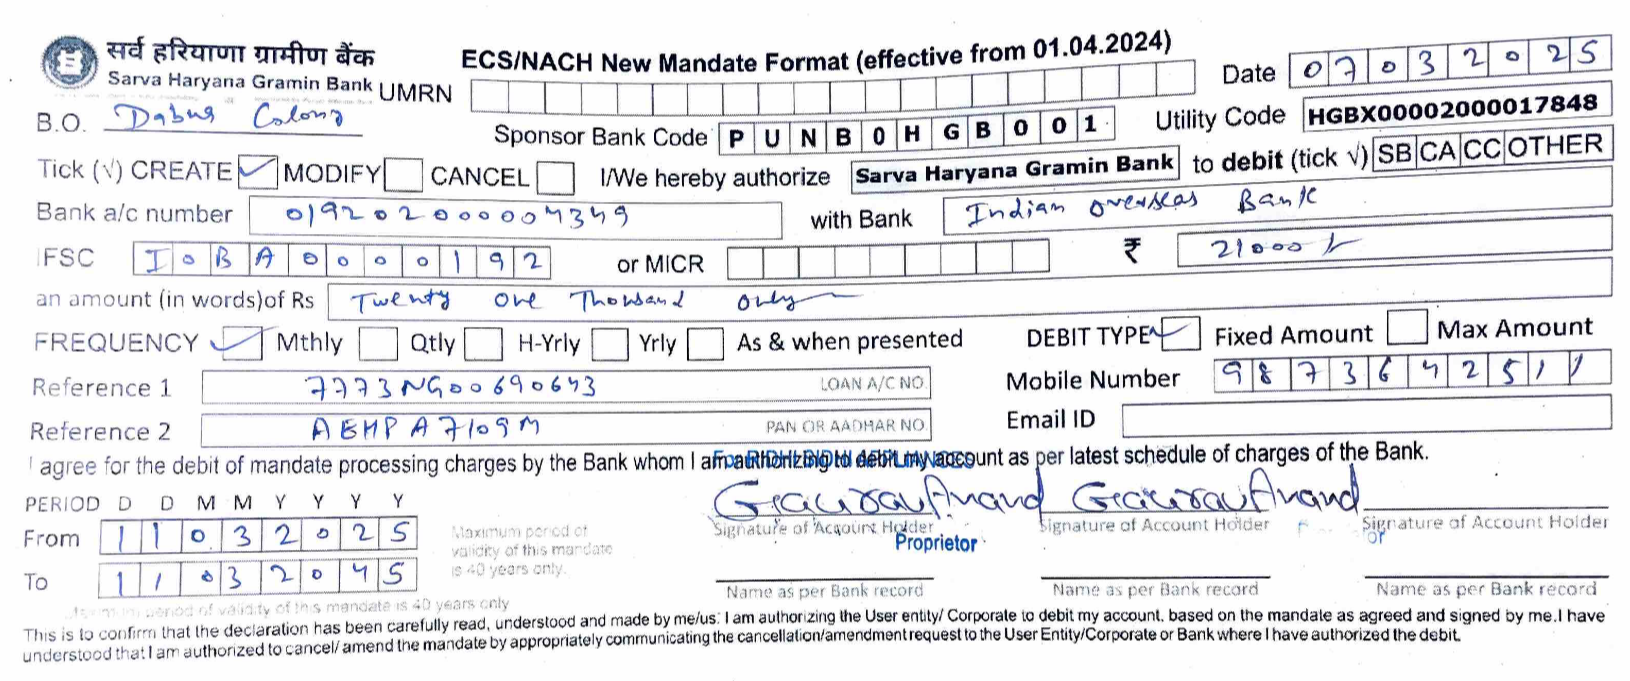 सर्व हरियाणा ग्रामीण बैंक
Sarva Haryana Gramin Bank
ECS/NACH New Mandate Format (effective from 01.04.2024)
Date 07032025
UMRN
B.O. Colony
Sponsor Bank Code PUNB0HGB001
Utility Code HGBX00002000017848
Tick (√) CREATE ✓ MODIFY CANCEL I/We hereby authorize Sarva Haryana Gramin Bank to debit (tick √) SB CA CC OTHER
Bank a/c number 019202000004349 with Bank Indian overseas Bank
IFSC IOBA0000192 or MICR ₹ 21000/-
an amount (in words)of Rs Twenty one Thousand only
FREQUENCY ✓ Mthly Qtly H-Yrly Yrly As & when presented DEBIT TYPE ✓ Fixed Amount Max Amount
Reference 1 7773NG00690643 LOAN A/C NO. Mobile Number 9873642511
Reference 2 AEHPA7109M PAN OR AADHAR NO. Email ID
I agree for the debit of mandate processing charges by the Bank whom I am authorizing to debit my account as per latest schedule of charges of the Bank.
PERIOD D D M M Y Y Y Y
From 11032025
To 11032045
Maximum period of
validity of this mandate
is 40 years only.
Gaurav Anand Gaurav Anand
Signature of Account Holder Signature of Account Holder Signature of Account Holder
Proprietor
or
Name as per Bank record Name as per Bank record Name as per Bank record
Maximum period of validity of this mandate is 40 years only
This is to confirm that the declaration has been carefully read, understood and made by me/us: I am authorizing the User entity/ Corporate to debit my account. based on the mandate as agreed and signed by me.I have
understood that I am authorized to cancel/ amend the mandate by appropriately communicating the cancellation/amendment request to the User Entity/Corporate or Bank where I have authorized the debit.